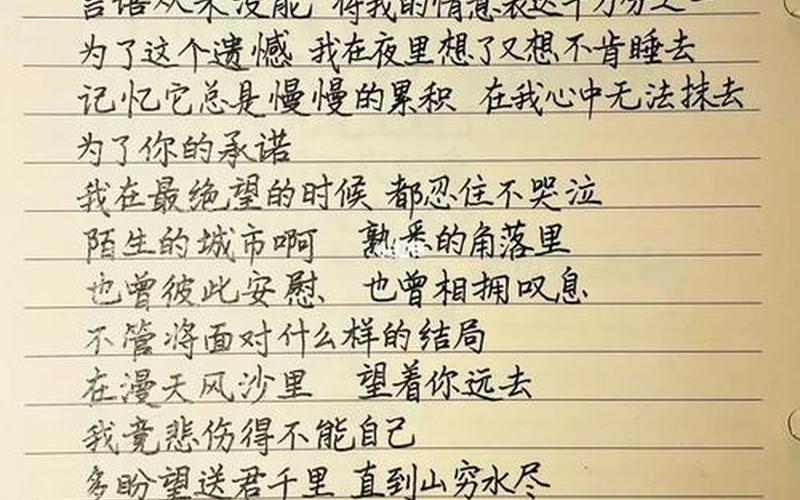 言语从来没能 将我的情意表达千万分之一
为了这个遗憾 我在夜里想了又想不肯睡去
记忆它总是慢慢的累积 在我心中无法抹去
为了你的承诺
我在最绝望的时候 都忍住不哭泣
陌生的城市啊 熟悉的角落里
也曾彼此安慰、也曾相拥叹息
不管将面对什么样的结局
在漫天风沙里 望着你远去
我竟悲伤得不能自己
多盼望送君千里 直到山穷水尽